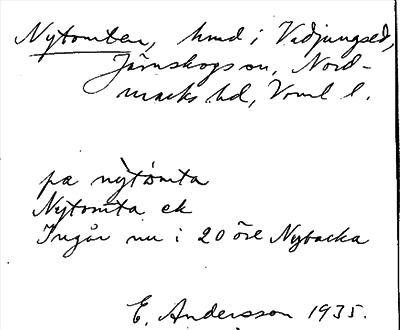 Nytomten, hmd i Vidjungsed,
Järnskogs sn, Nord-
marks hd, Vrml l.
pa nỳtómta
Nytomta ek
Ingår nu i 20 öre Nybacka
E. Andersson 1935.